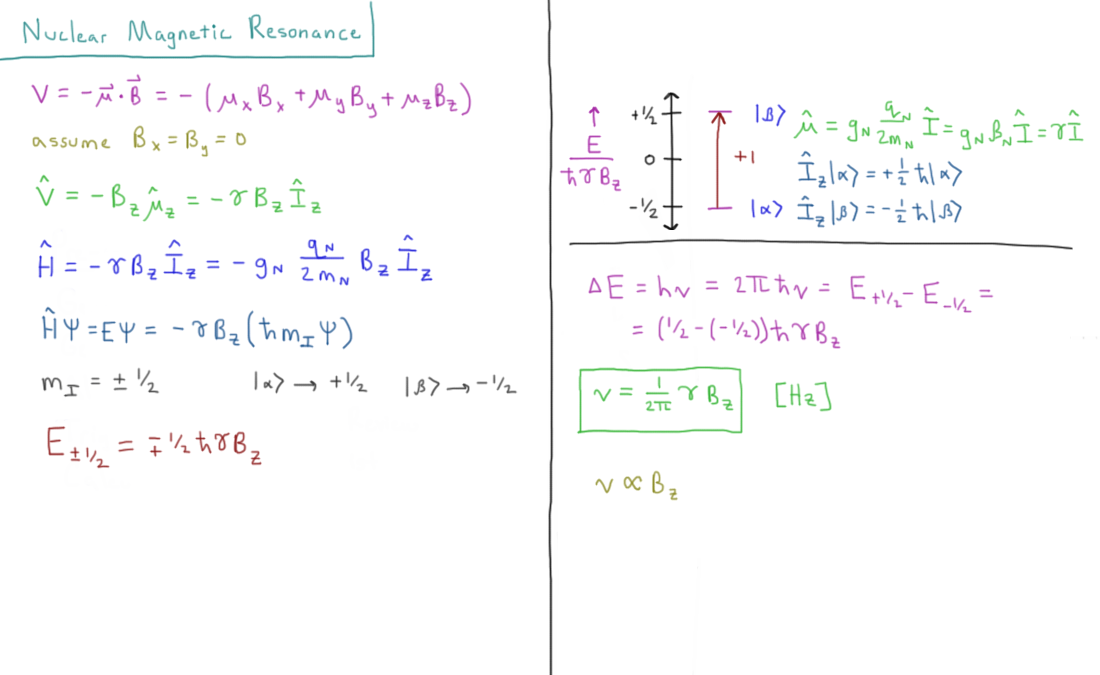 Nuclear Magnetic Resonance
V = -μ⃗·B⃗ = -(μₓBₓ + μ_yB_y + μ_zB_z)
assume Bₓ = B_y = 0
V̂ = -B_z μ̂_z = -γB_z Î_z
Ĥ = -γB_z Î_z = -g_N q_N/2m_N B_z Î_z
ĤΨ = EΨ = -γB_z(ħm_IΨ)
m_I = ± 1/2 |α⟩ → +1/2 |β⟩ → -1/2
E_±1/2 = ∓1/2 ħγB_z
↑ E/ħγB_z
+1/2
0
-1/2
+1
|β⟩
|α⟩
μ̂ = g_N q_N/2m_N Î = g_N β_N Î = γÎ
Î_z|α⟩ = +1/2 ħ|α⟩
Î_z|β⟩ = -1/2 ħ|β⟩
ΔE = hν = 2πħν = E_+1/2 - E_-1/2 =
= (1/2 - (-1/2))ħγB_z
ν = 1/2π γ B_z [Hz]
ν ∝ B_z